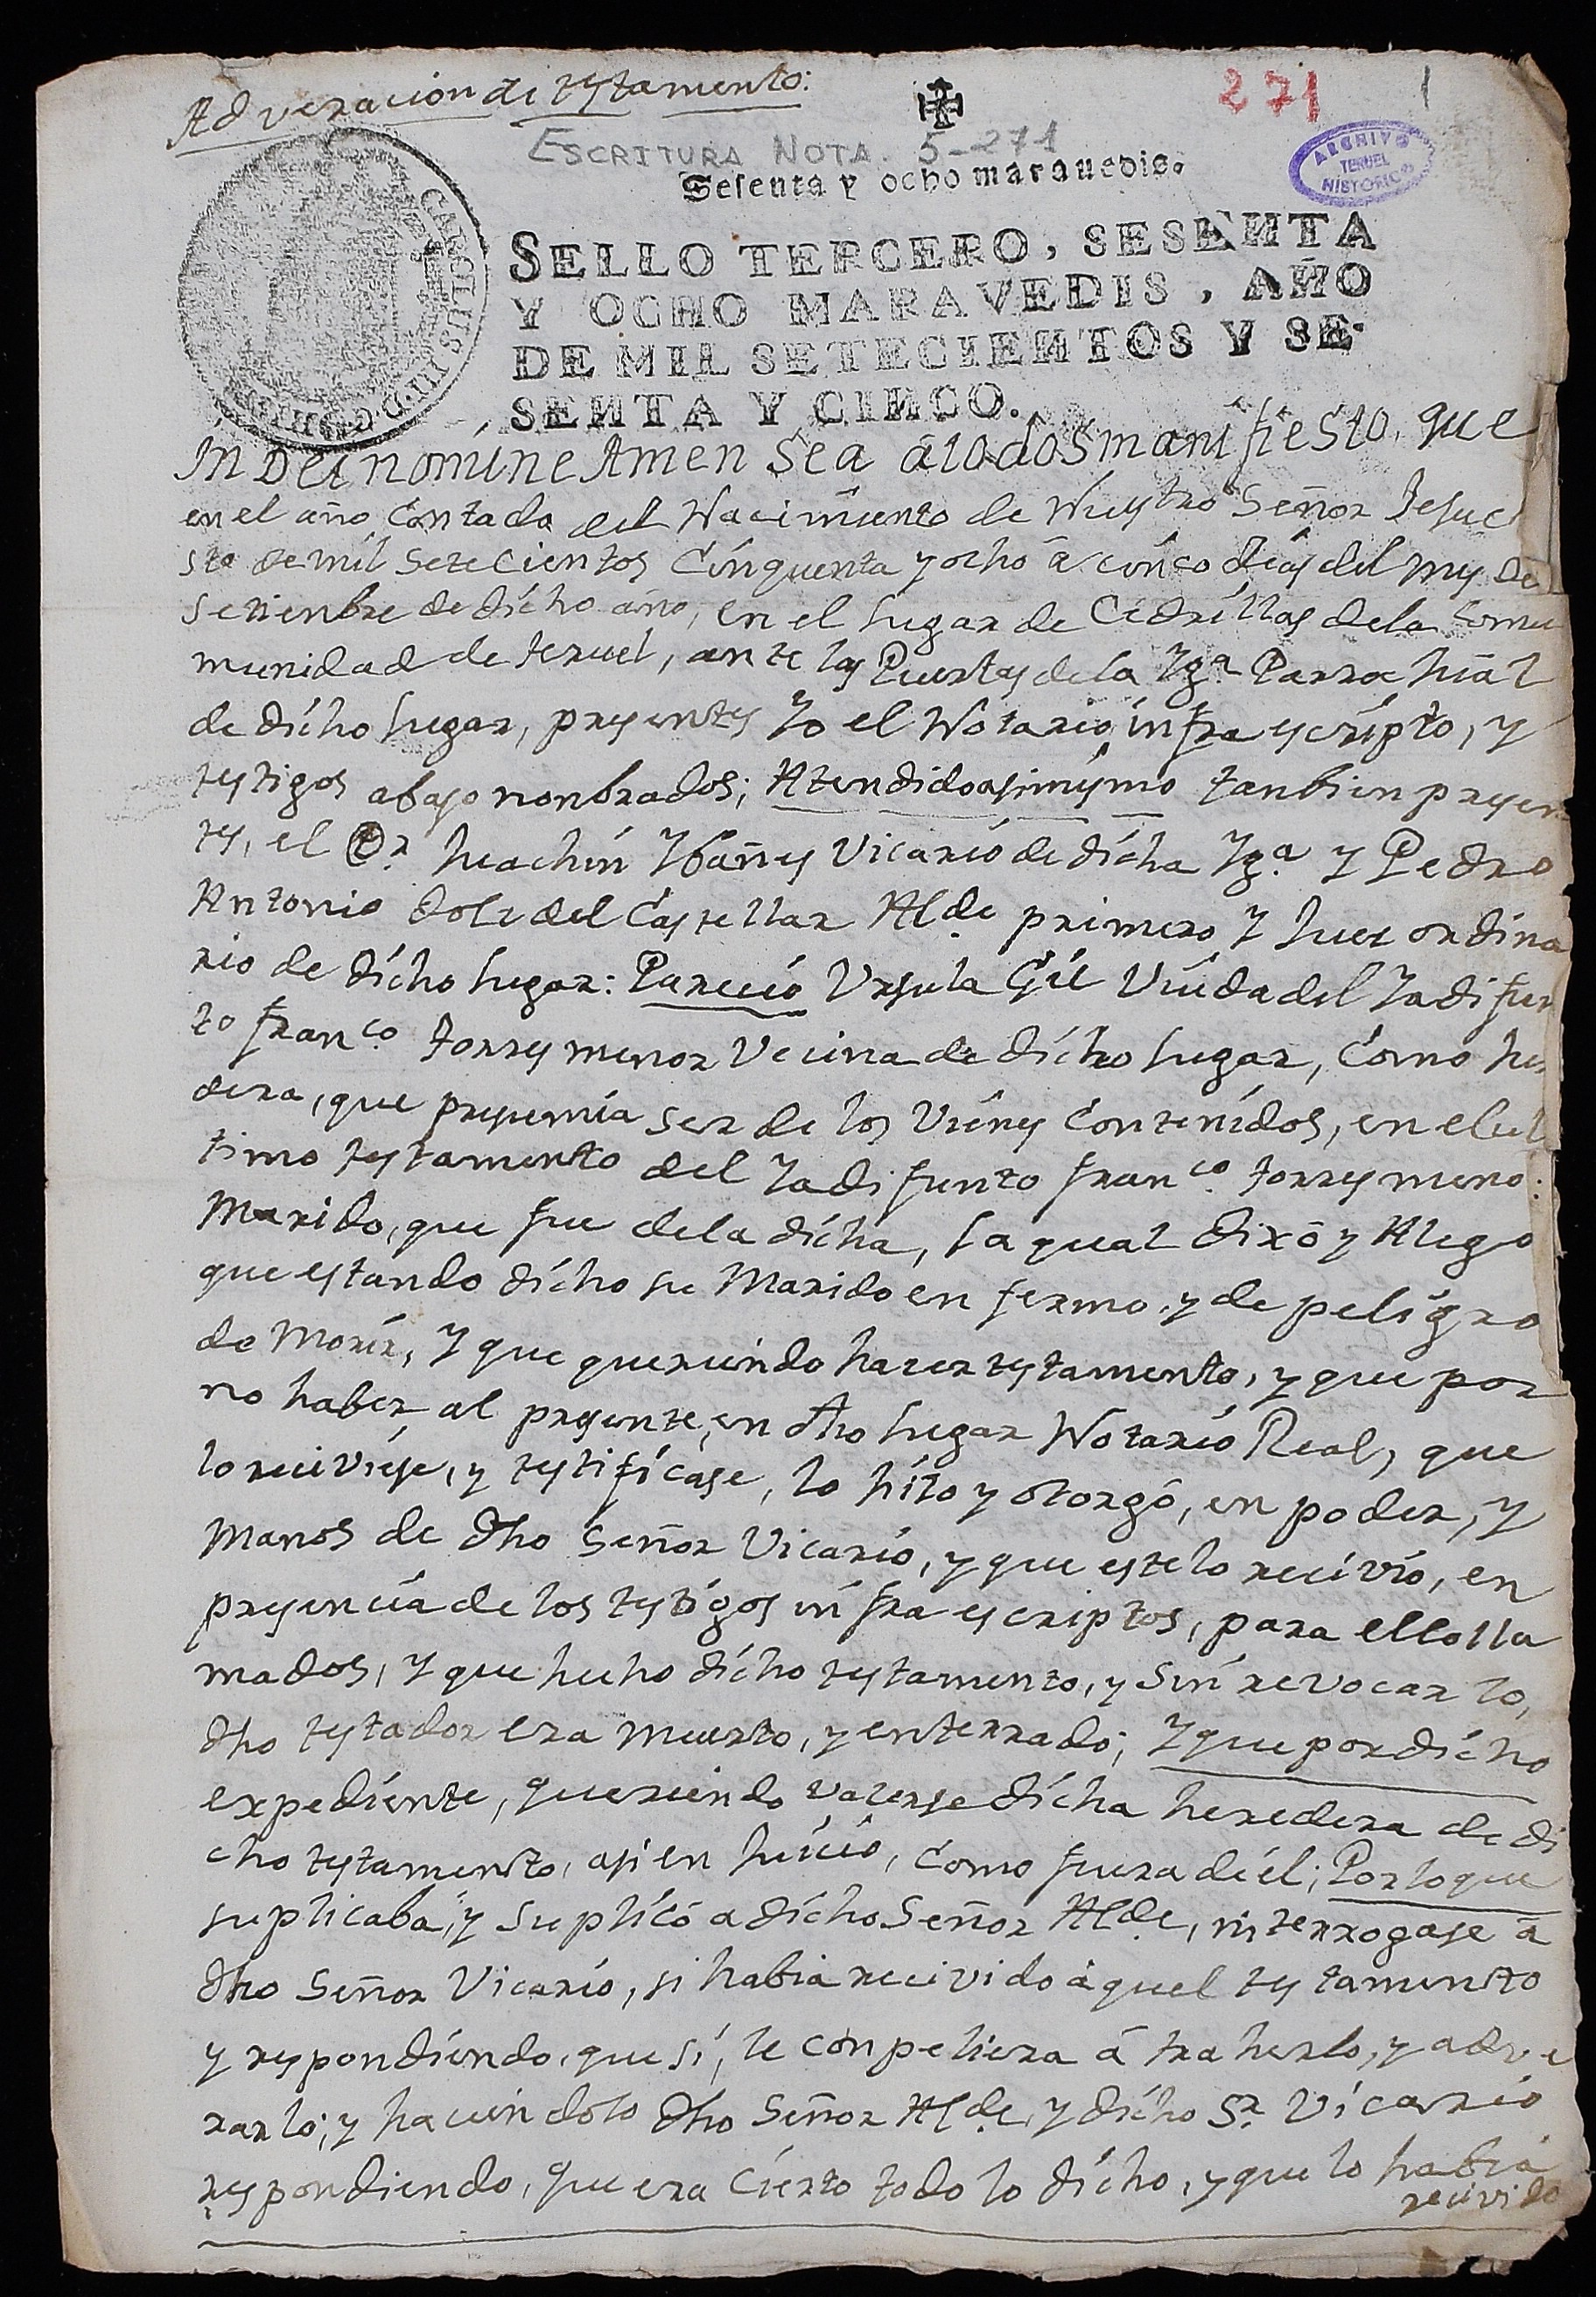 Adveracion de testamento:
271
1
ESCRITURA NOTA. 5-271
ARCHIVO
TERUEL
HISTORICO
Sesenta y ocho maravedis.
SELLO TERCERO, SESENTA
Y OCHO MARAVEDIS, AÑO
DE MIL SETECIENTOS Y SE-
SENTA Y CINCO.
CAROLUS III D. G. HISP
In Dei nomine Amen Sea a todos manifiesto, que
en el año contado del Nacimiento de Nuestro Señor Jesuc
sto de mil setecientos cinquenta y ocho á cinco dias del mes de
setienbre de dicho año, en el lugar de Cedrillas de la comu
munidad de teruel, ante las Puertas de la Yga. Parrochial
de dicho lugar, presentes Yo el Notario infraescripto, y
testigos abajo nonbrados; Atendido asimismo tanbien presen
tes, el Dr. Juachin Ybañes Vicario de dicha Yga. y Pedro
Antonio Dolz del Castellar Alde. primero y Juez ordina
rio de dicho lugar: Pareció Ursula Gil Viuda del Ya difun
to franco. torres menor Vecina de dicho lugar, como here
dera, que presumia ser de los Vienes contenidos, en el ul
timo testamento del Ya difunto franco. torres meno:
Marido, que fue de la dicha, la qual dixo y Alego
que estando dicho su Marido enfermo, y de peligro
de Morir, Y que queriendo hazer testamento, y que por
no haber al presente, en dho lugar Notario Real, que
lo reciviese, y testificase, lo hizo y otorgó, en poder, y
manos de dho Señor Vicario, y que este lo recivio, en
presencia de los testigos infraescriptos, para ello lla
mados, Y que hecho dicho testamento, y sin revocarlo,
dho testador era muerto, y enterrado; Y que por dicho
expediente, queriendo valerse dicha heredera de di
cho testamento, asi en Juicio, como fuera de él; Por lo que
suplicaba, y suplicó a dicho Señor Alde, interrogase á
dho Señor Vicario, si habia recivido aquel testamento
y respondiendo, que sí, le conpeliera á traherlo, y adve
rarlo; y haciendolo dho Señor Alde, y dicho Sr. Vicario
respondiendo, que era cierto todo lo dicho, y que lo habia
recivido